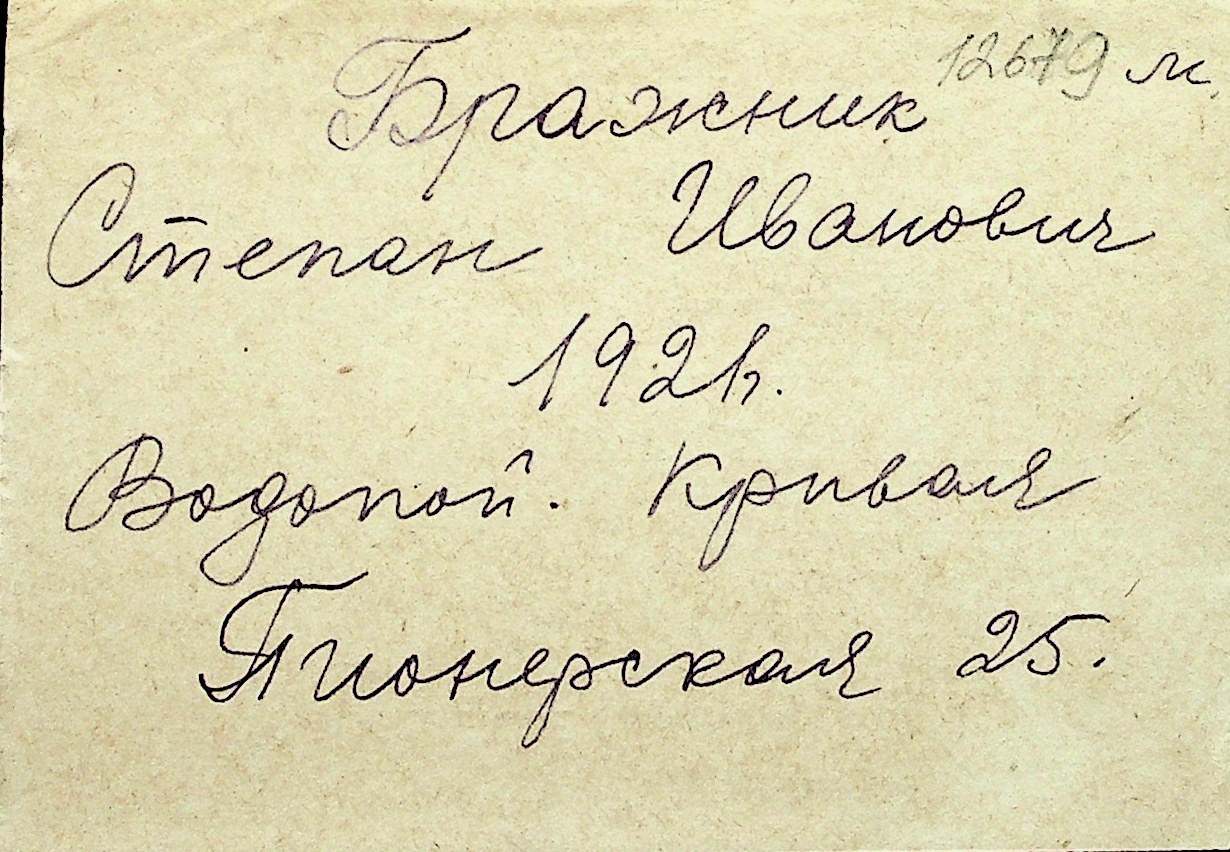 12679 м.
Бражник
Степан Иванович
1921г.
Водопой. Кривая
Пионерская 25.